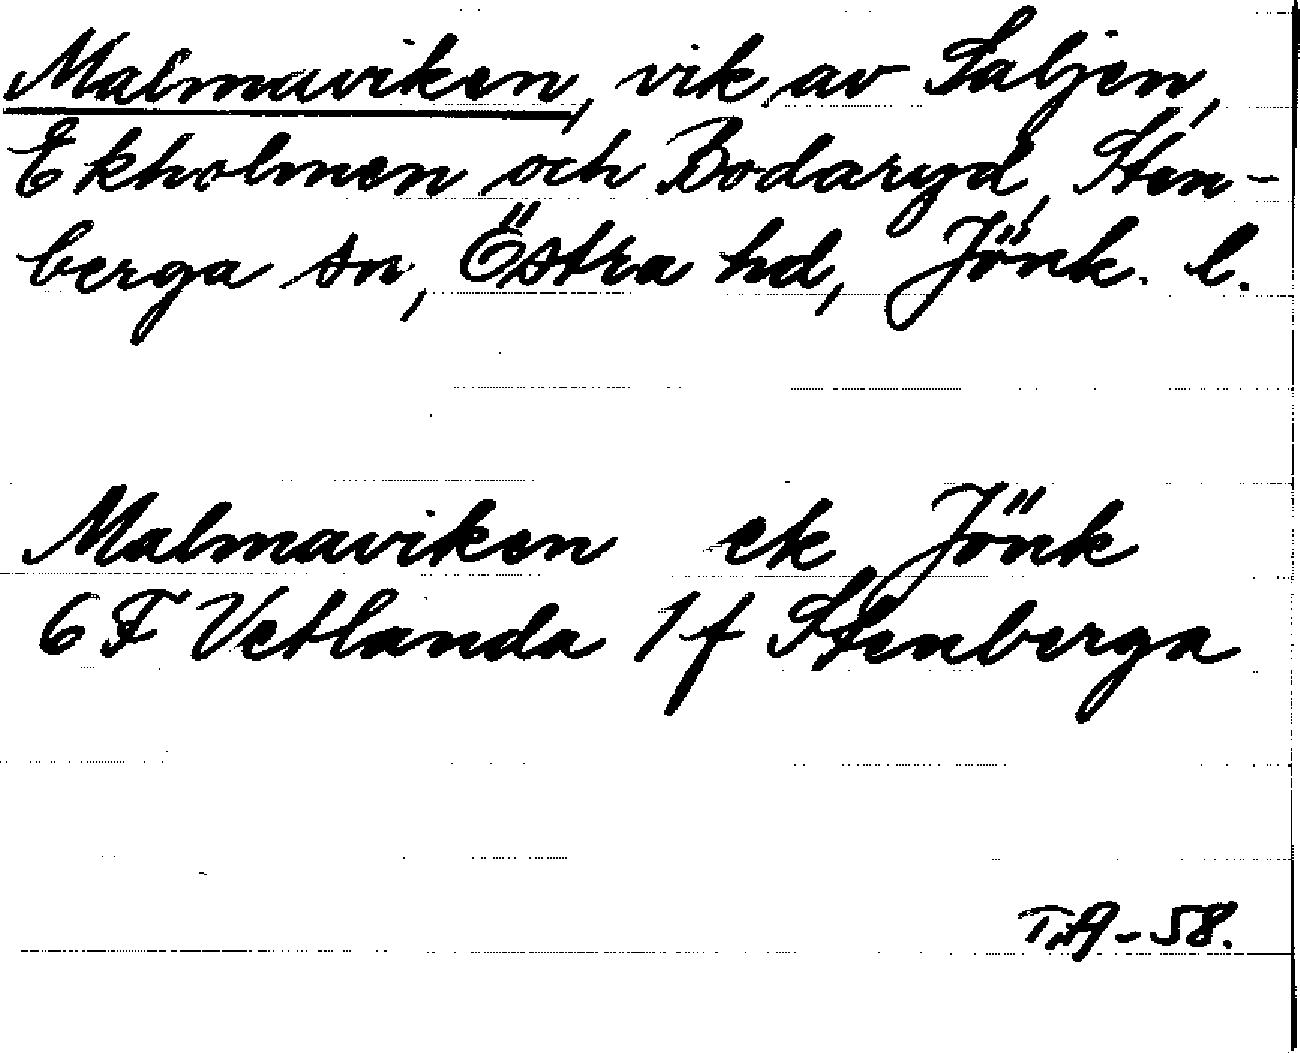 Malmaviken, vik av Saljen,
Ekholmen och Bodaryd, Sten-
berga sn, Östra hd, Jönk. l.
Malmaviken ek Jönk
6 F Vetlanda 1 f Stenberga
T.A-58.